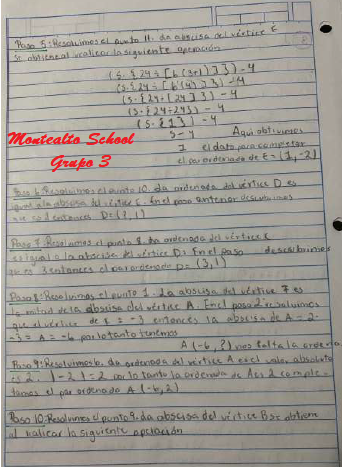 Paso 5: Resolvimos el punto 11. La abscisa del vértice E
se obtiene al realizar la siguiente operación
(5-{24÷[6(3+1)]})-4
(5-{24÷[6(4)]})-4
(5-{24÷[24]})-4
(5-{24÷24})-4
(5-{1})-4
5-4 Aqui obtuvimos
1 el dato para completar
el par ordenado de E=(1,-2)
Montealto School
Grupo 3
Paso 6: Resolvimos el punto 10. La ordenada del vértice D es
igual a la abscisa del vértice E. En el paso anterior descubrimos
que es entonces D=
Paso 7: Resolvimos el punto 8. La ordenada del vértice
es igual a la abscisa del vértice D. En el paso descubrimos
que es 3 entonces el par ordenado D=(3,1)
Paso 8: Resolvimos el punto 1. La abscisa del vértice F es
la mitad de la abscisa del vértice A. En el paso 2 resolvimos
que el vértice de F = -3 entonces la abscisa de A = 2·
-3 = A = -6 por lo tanto tenemos
A(-6,?) nos falta la ordena
Paso 9: Resolvimos 6. La ordenada del vértice A es el valor absoluto
es 2. |-2|=2 por lo tanto la ordenada de A es 2 comple-
tamos el par ordenado A(-6,2)
Paso 10: Resolvimos el punto 9. La abscisa del vértice B se obtiene
al realicar la siguiente operación